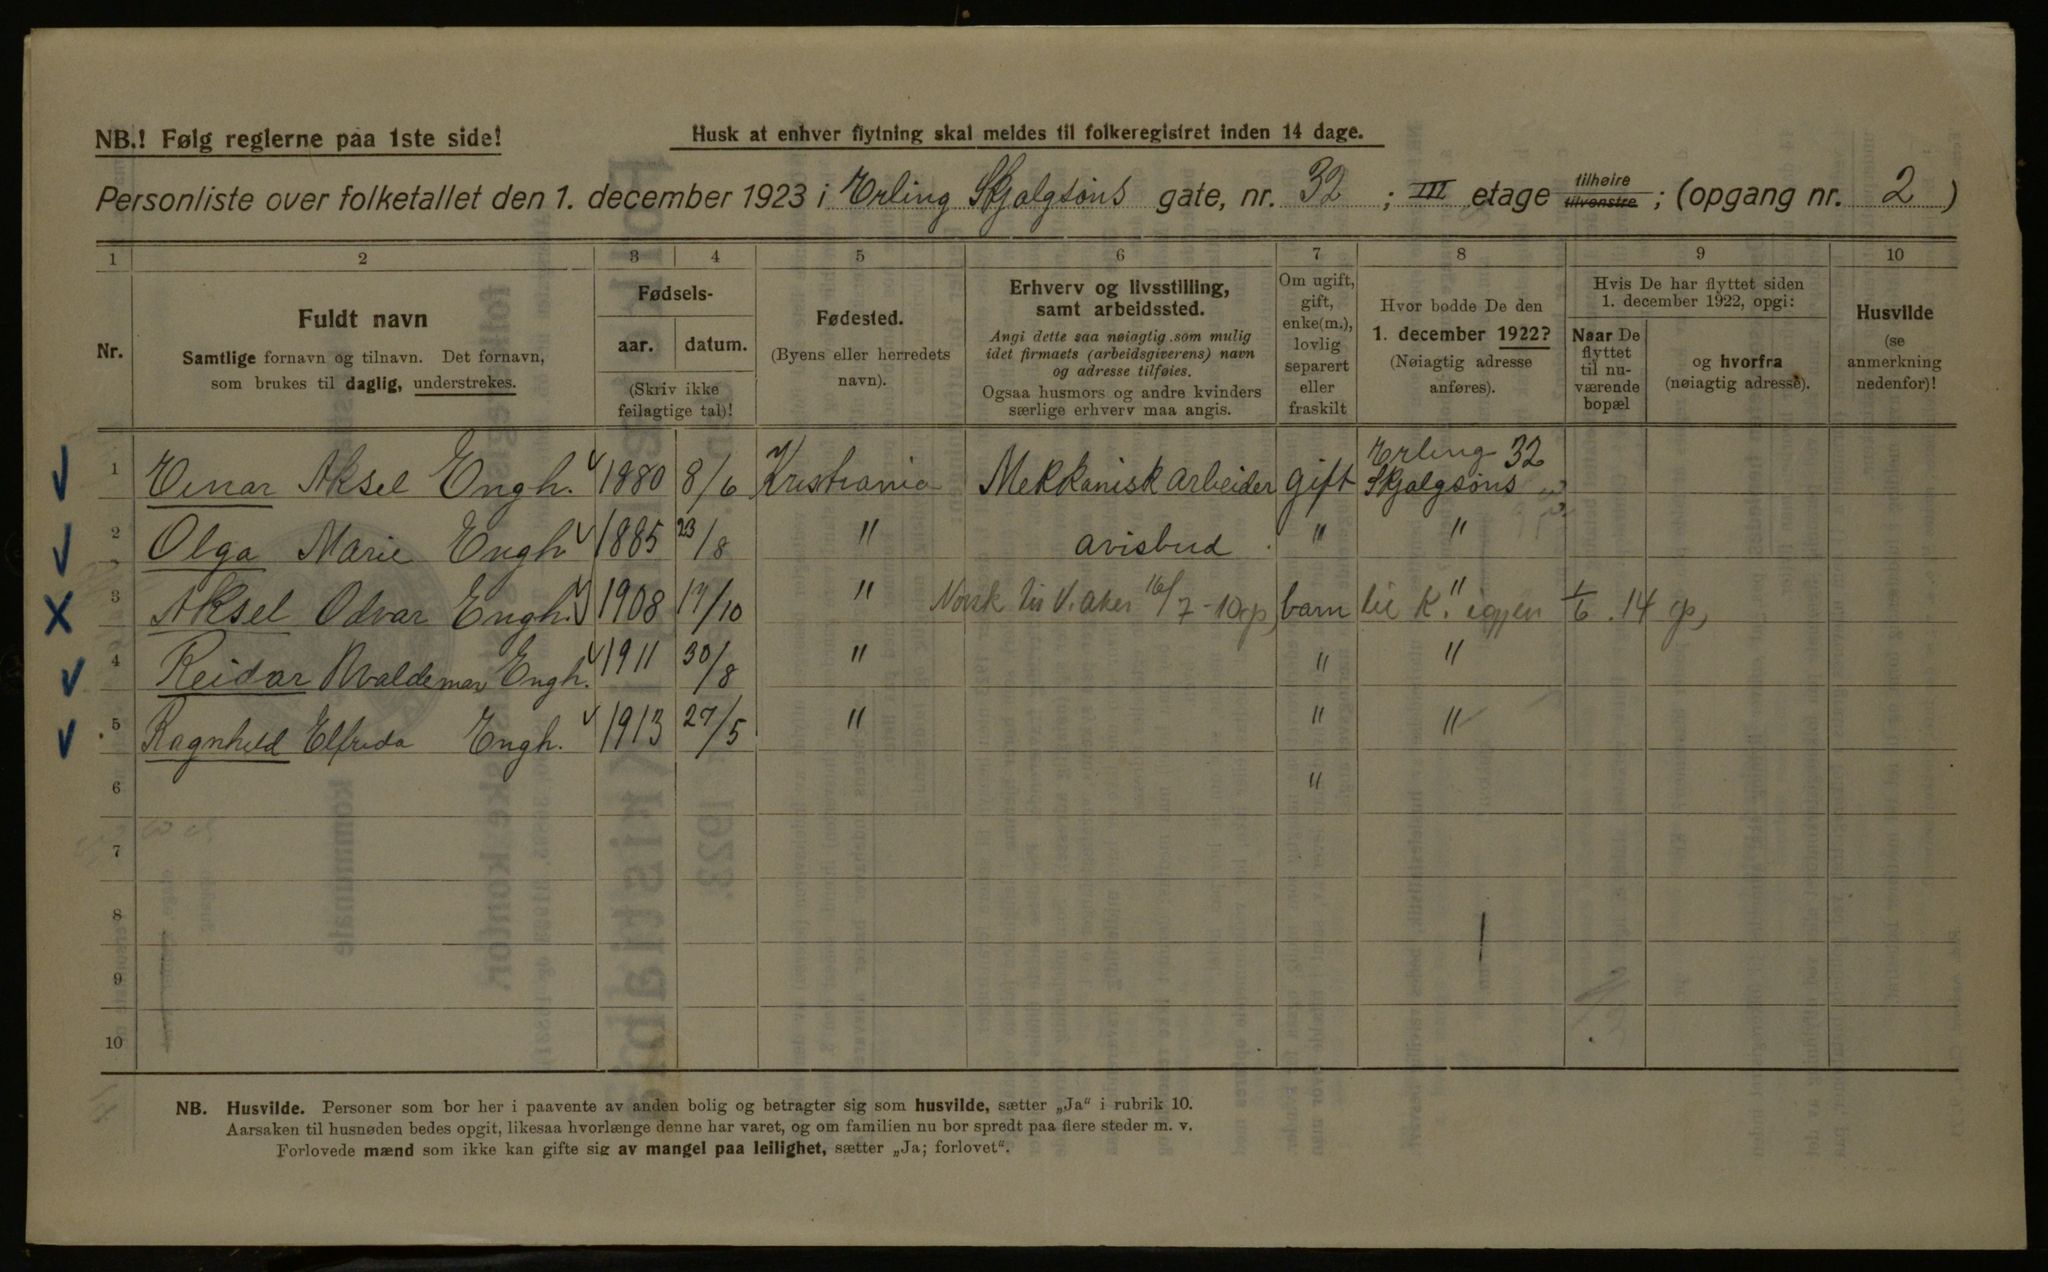 NB.! Følg reglerne paa 1ste side!
Husk at enhver flytning skal meldes til folkeregistret inden 14 dage.
Personliste over folketallet den 1. december 1923 i Erling Skjalgsöns gate, nr. 32 ; III etage tilhøire tilvenstre ; (opgang nr. 2 )
1 2 3 4 5 6 7 8 9 10
Nr.
Fuldt navn
Samtlige fornavn og tilnavn. Det fornavn,
som brukes til daglig, understrekes.
Fødsels-
aar. datum.
(Skriv ikke
feilagtige tal)!
Fødested.
(Byens eller herredets
navn).
Erhverv og livsstilling,
samt arbeidssted.
Angi dette saa nøiagtig som mulig
idet firmaets (arbeidsgiverens) navn
og adresse tilføies.
Ogsaa husmors og andre kvinders
særlige erhverv maa angis.
Om ugift,
gift,
enke(m.),
lovlig
separert
eller
fraskilt
Hvor bodde De den
1. december 1922?
(Nøiagtig adresse
anføres).
Hvis De har flyttet siden
1. december 1922, opgi:
Naar De
flyttet
til nu-
værende
bopæl
og hvorfra
(nøiagtig adresse).
Husvilde
(se
anmerkning
nedenfor)!
1 Einar Aksel Engh. 1880 8/6 Kristiania Mekkanisk arbeider gift Erling 32
Skjalgsöns
2 Olga Marie Engh 1885 23/8 " avisbud " "
3 Aksel Odvar Engh. 1908 17/10 " Norsk til V. Aker 16/7 - 10 cp, barn " til K. igjen 1/6 . 14 cp,
4 Reidar Waldemar Engh. 1911 30/8 " " "
5 Ragnhild Elfrida Engh. 1913 27/5 " " "
6 "
7
8
9
10
NB. Husvilde. Personer som bor her i paavente av anden bolig og betragter sig som husvilde, sætter „Ja“ i rubrik 10.
Aarsaken til husnøden bedes opgit, likesaa hvorlænge denne har varet, og om familien nu bor spredt paa flere steder m. v.
Forlovede mænd som ikke kan gifte sig av mangel paa leilighet, sætter „Ja; forlovet“.